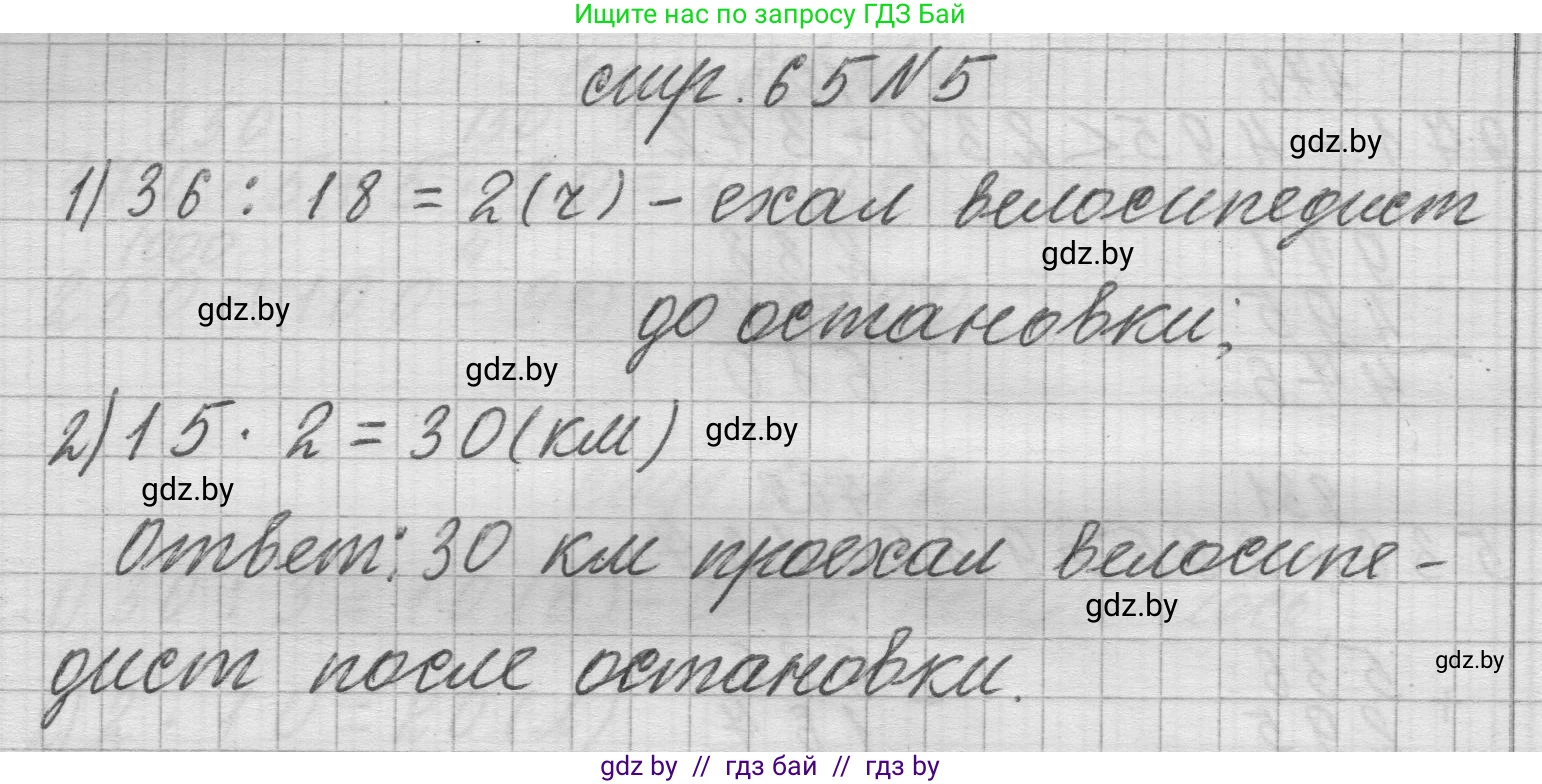 Ищите нас по запросу ГДЗ Бай
стр. 65 N 5
gdz.by
1) 36 : 18 = 2 (ч) - ехал велосипедист
gdz.by
до остановки;
gdz.by
gdz.by
2) 15 · 2 = 30 (км)
gdz.by
gdz.by
Ответ: 30 км проехал велосипе -
gdz.by
дист после остановки.
gdz.by
gdz by // гдз бай // гдз by